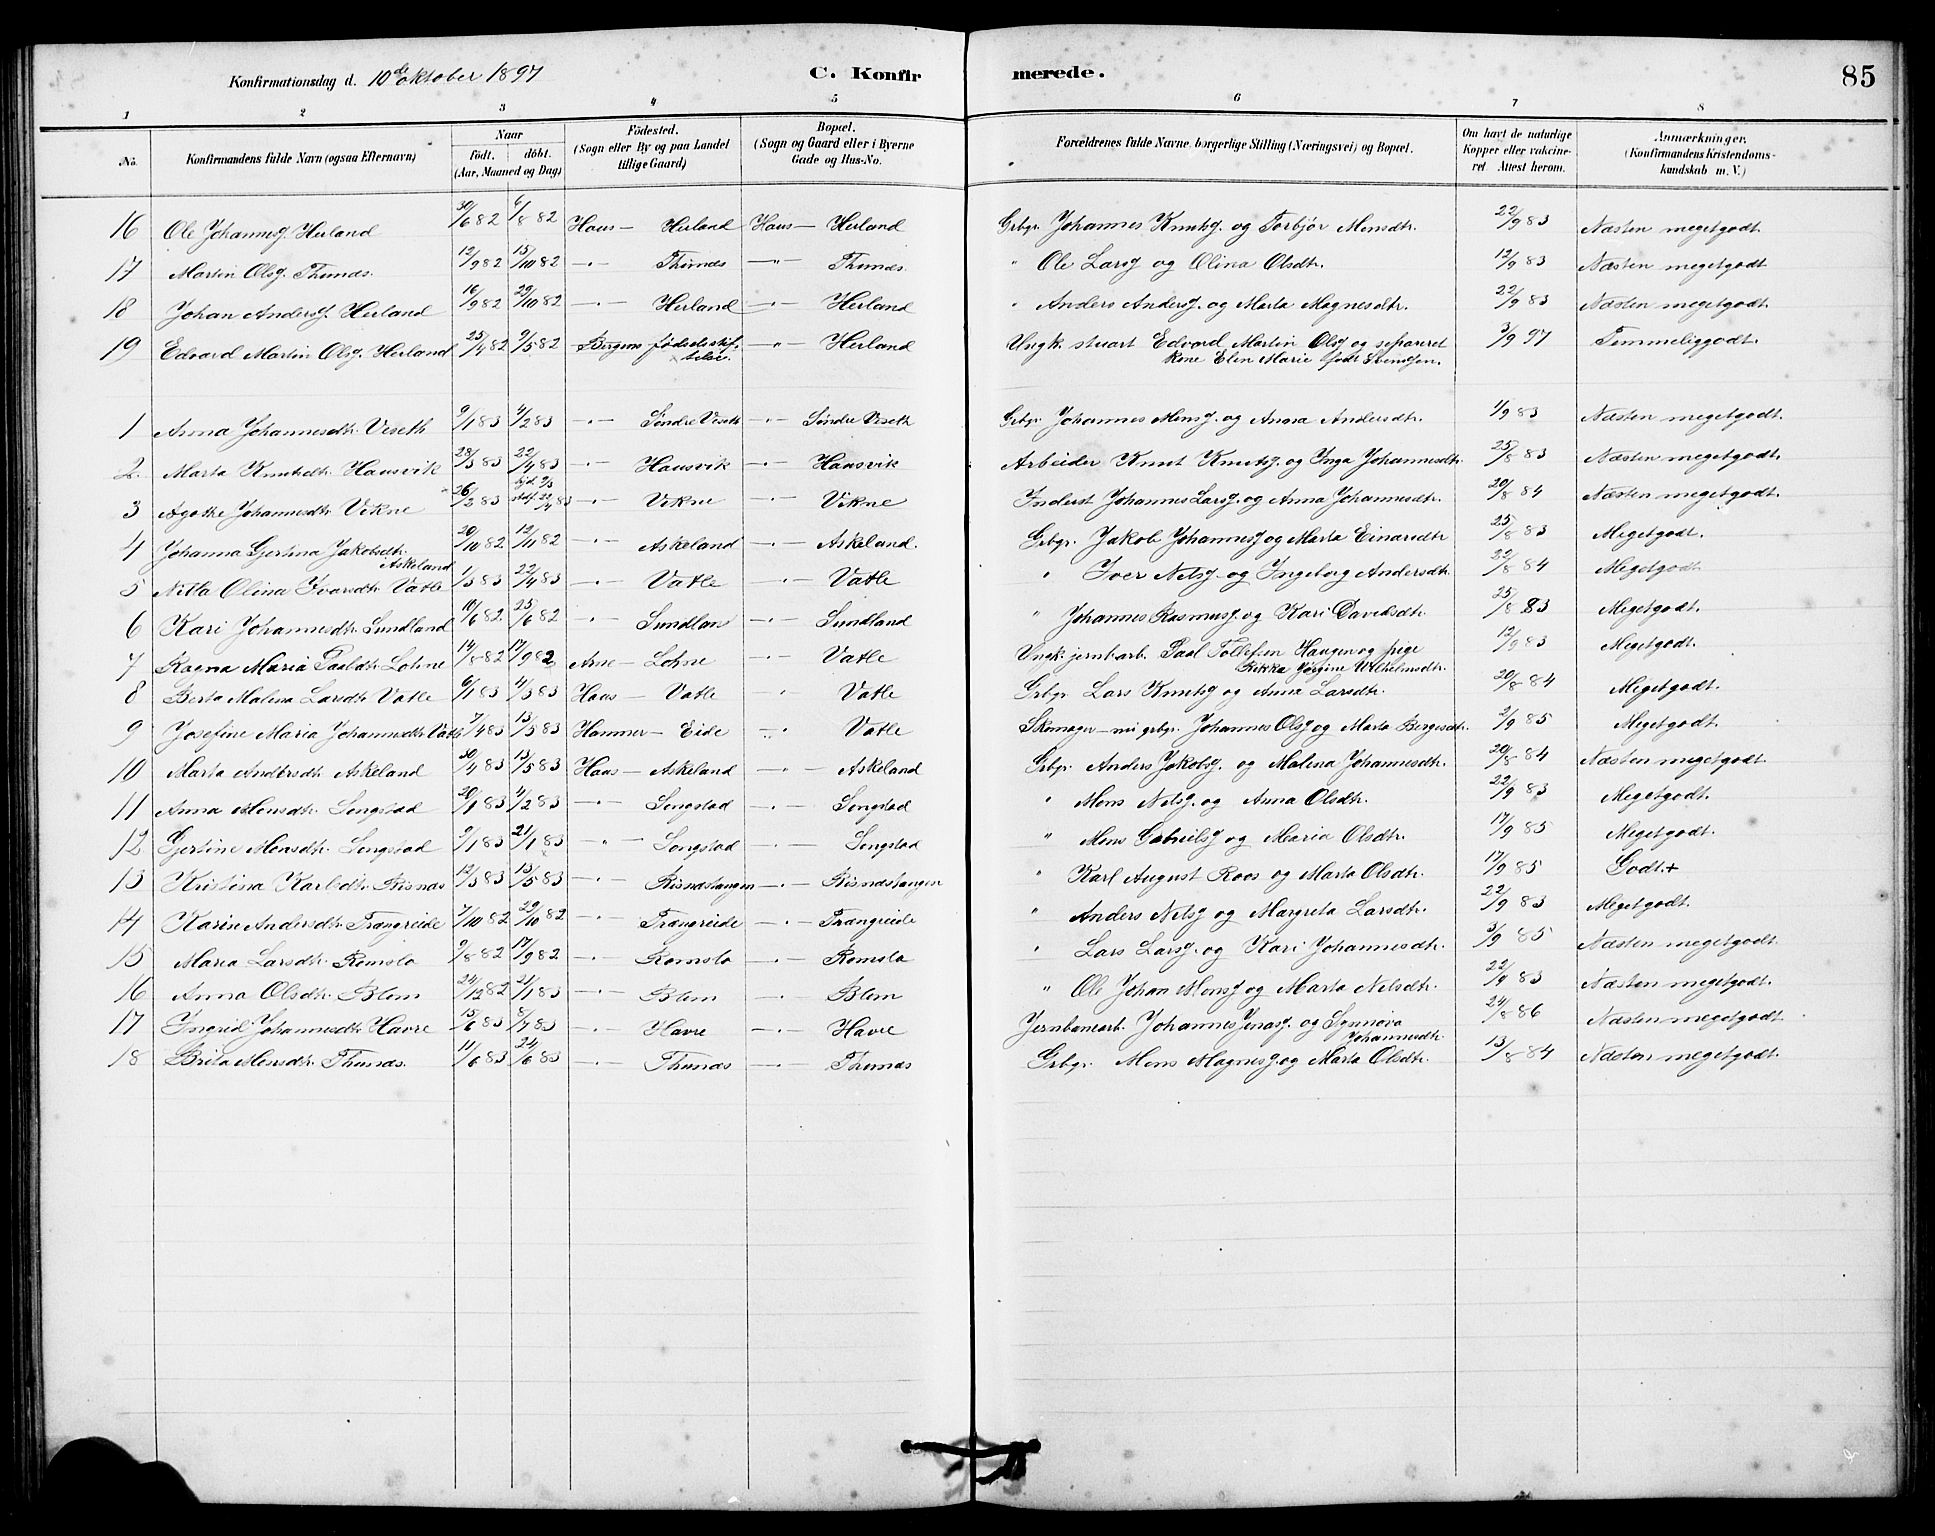 Konfirmationsdag d. 10de oktober 1897 C. Konfirmerede. 85
1 2 3 4 5 6 7 8
No. Konfirmandens fulde Navn (ogsaa Efternavn) Naar født. døbt. (Aar, Maaned og Dag) Fødested. (Sogn eller By og paa Landet tillige Gaard) Bopæl. (Sogn og Gaard eller i Byerne Gade og Hus-No. Forældrenes fulde Navne, borgerlige Stilling (Næringsvei) og Bopæl. Om havt de naturlige Kopper eller vakcineret Attest herom. Anmærkninger. (Konfirmandens Kristendomskundskab m. V.)
16 Ole Johannesj Herland 30/6 82 6/8 82 Haus — Herland Haus — Herland Grbgr. Johannes Knutsj. og Torbjør Monsdtr. 22/9 83 Næsten megetgodt.
17 Martin Olsj. Thunæs. 12/9 82 15/10 82 —"— Thunæs —"— Thunæs. " Ole Larsj og Olina Olsdtr. 12/9 83 Næsten megetgodt
18 Johan Andersj. Herland 16/9 82 29/10 82 —"— Herland —"— Herland " Anders Andersj. og Marta Magnesdtr. 22/9 83 Næsten megetgodt.
19 Edvard Martin Olsj. Herland 25/4 82 9/5 82 Bergens fødselsstiftelse. —"— Herland Ungk. stuart Edvard Martin Olsj og separeret kone Elen Marie født Svendsen. 3/9 97 Temmeliggodt.
1 Anna Johannesdtr. Veseth 9/1 83 4/2 83 —"— Søndre Veseth —"— Søndre Veseth Grbgr. Johannes Monsj. og Anna Andersdtr. 4/9 83 Næsten megetgodt.
2 Marta Knutsdtr. Hausvik 28/3 83 22/4 83 —"— Hausvik —"— Hausvik Arbeider Knut Knutsj. og Inga Johannesdtr. 25/8 83 Næsten megetgodt.
3 Agothe Johannesdtr. Vikne 26/2 83 hjd. 2/3 stdf. 22/4 83 —"— Vikne —"— Vikne Inderst Johannes Larsj. og Anna Johannesdtr. 20/8 84 Næsten megetgodt.
4 Johanna Gjertina Jakobsdtr. Askeland 20/10 82 12/11 82 —"— Askeland —"— Askeland. Grbgr. Jakob Johannesj og Marta Einarsdtr 25/8 83 Megetgodt.
5 Nilla Olina Ivarsdtr. Vatle 1/3 83 22/4 83 —"— Vatle —"— Vatle " Iver Nelsj. og Ingeborg Andersdtr. 22/8 84 Megetgodt
6 Kari Johannesdtr. Sundland 10/6 82 25/6 82 —"— Sundlan —"— Sundland " Johannes Rasmusj. og Kari Davidsdtr. 25/8 83 Megetgodt.
7 Ragna Maria Paalsdtr. Lohne 14/8 82 17/9 82 Arne — Lohne —"— Vatle Ungk. jernb.arb. Paal Tollefsen Haugen og pige Rikka Jørgine Wilhelmsdtr. 12/9 83 Megetgodt.
8 Berta Malena Larsdtr. Vatle 6/1 83 4/3 83 Haus — Vatle " Vatle Grbgr. Lars Knutsj og Anna Larsdtr. 20/8 84 Megetgodt.
9 Josefine Maria Johannesdtr. Vatle 7/4 83 13/5 83 Hammer — Eide —"— Vatle Skomager — nu grbgr. Johannes Olsj og Marta Børgesdtr. 2/9 85 Megetgodt.
10 Marta Andersdtr. Askeland 30/4 83 13/5 83 Haus — Askeland —"— Askeland Grbgr. Anders Jakobsj. og Malena Johannesdtr. 20/8 84 Næsten megetgodt.
11 Anna Monsdtr. Songstad 20/1 83 4/2 83 —"— Songstad —"— Songstad " Mons Nelsj. og Anna Olsdtr. 22/9 83 Megetgodt.
12 Gjertine Monsdtr. Songstad 9/1 83 21/1 83 —"— Songstad —"— Songstad " Mons Gabrielsj og Maria Olsdtr. 17/9 85 Megetgodt.
13 Kristina Karlsdtr. Risnæs 12/3 83 13/5 83 —"— Risnæstangen —"— Risnæstangen " Karl August Roos og Marta Olsdtr. 17/9 85 Godt +
14 Karin Andersdtr. Trangreide 7/10 82 29/10 82 —"— Trangreide —"— Trangreide " Anders Nelsj og Margreta Larsdtr. 22/9 83 Megetgodt.
15 Maria Larsdtr. Romslo 9/8 82 17/9 82 —"— Romslo —"— Romslo " Lars Larsj. og Kari Johannesdtr. 3/9 85 Næsten megetgodt.
16 Anna Olsdtr. Blom 24/12 82 21/1 83 —"— Blom —"— Blom " Ole Johan Monsj og Marta Nelsdtr. 22/9 83 Næsten megetgodt.
17 Ingrid Johannesdtr. Havre 15/6 83 8/7 83 —"— Havre —"— Havre Jernbanearb. Johannes Jonasj. og Synnøva Johannesdtr. 24/8 86 Næsten megetgodt.
18 Brita Monsdtr. Thunæs. 11/6 83 24/6 83 —"— Thunæs —"— Thunæs Grbgr. Mons Magnesj og Marta Olsdtr. 13/8 84 Næsten megetgodt.